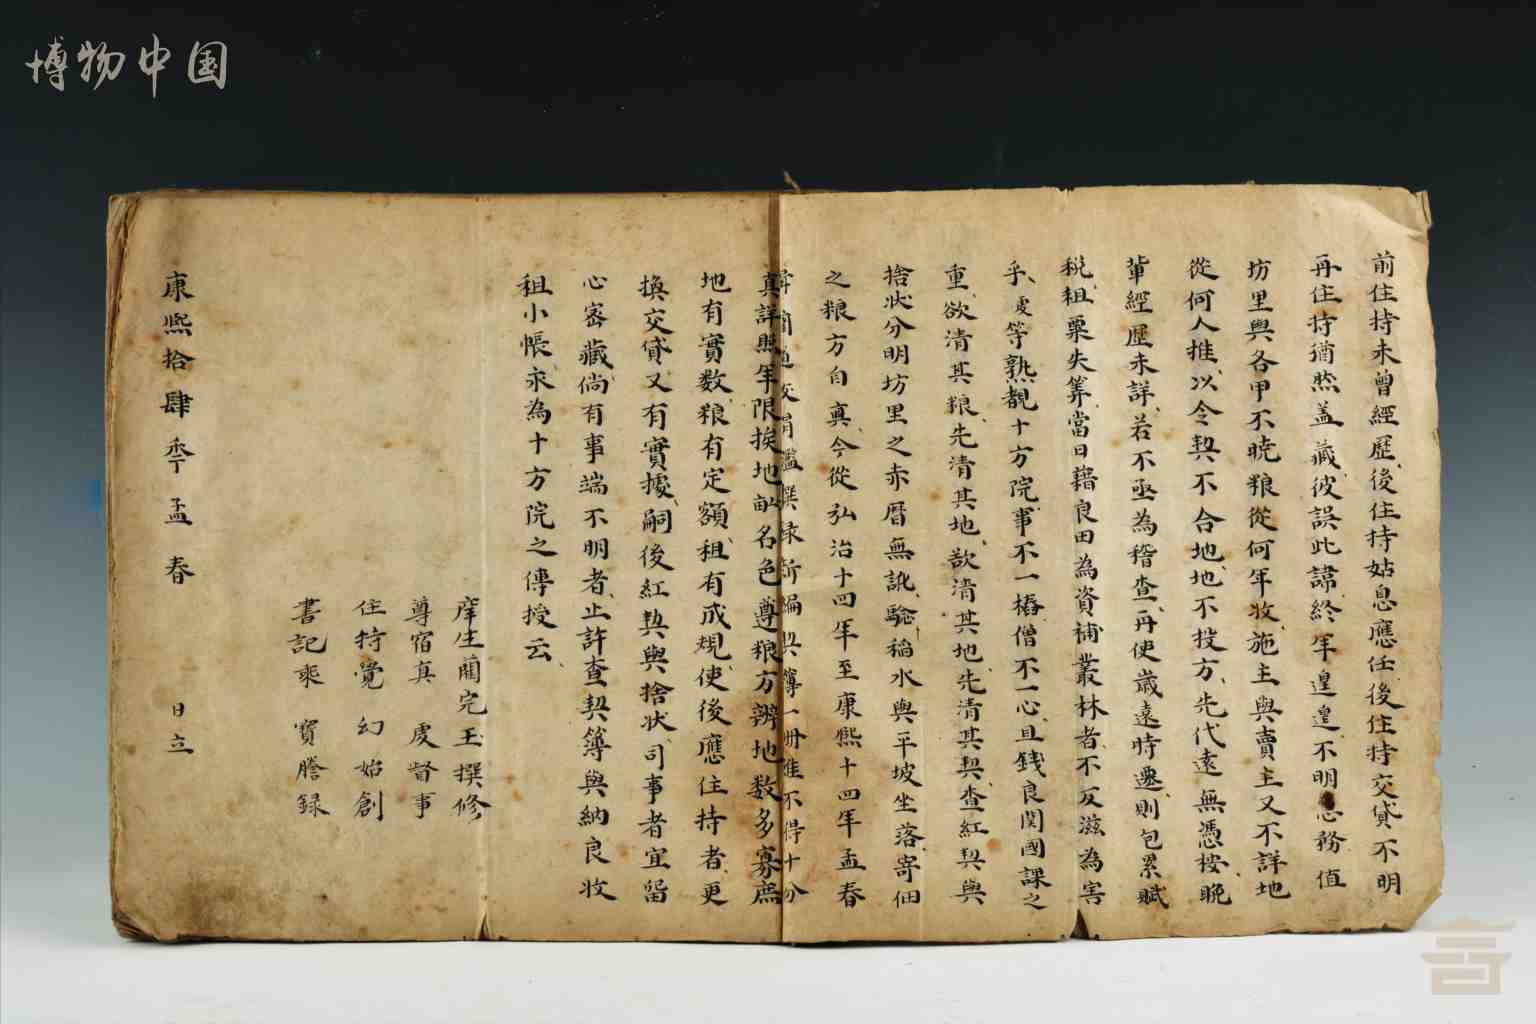 博物中国
前住持未曾經歷後住持姑息應任後住持交貸不明
再住持猶然盖藏彼誤此諱終年遑遑不明息務值
坊里與各甲不曉粮從何年收施主與賣主又不詳地
從何人推以令契不合地地不投方先代遠無憑按晚
軰經歷未詳若不亟為稽查再使歲遠時遷則包累賦
税租粟失筭當日藉良田為資補叢林者不反滋為害
乎䖍等熟覩十方院事不一樁僧不一心且錢良関國課之
重欲清其粮先清其地欲清其地先清其契查紅契與
捨狀分明坊里之赤曆無訛騐稲水與平坡坐落寄佃
之粮方自真今從弘治十四年至康熙十四年孟春
撰錄新編契簿一册惟不得十分
真詳照年限挨地畝名色遵粮方辨地数多寡庶
地有實数粮有定額租有成規使後應住持者更
換交貸又有實據嗣後紅契與捨狀司事者宜留
心密藏倘有事端不明者止許查契簿與納良收
租小帳永為十方院之傳授云
庠生蘭完玉撰修
尊宿真䖍督事
住持覺幻始創
書記乘寶謄録
康熙拾肆季孟春 日立